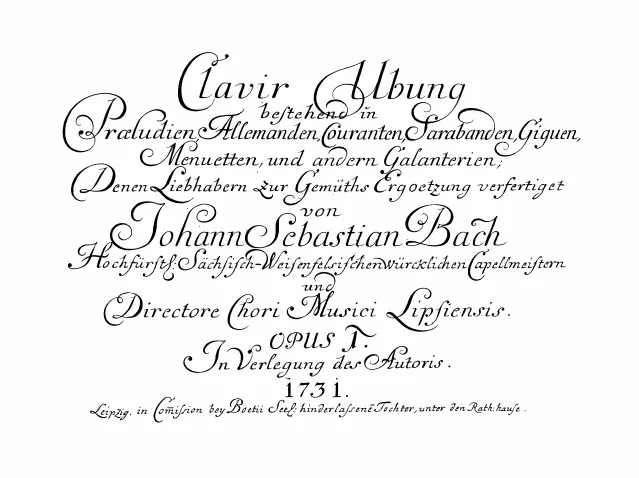 Clavir Ubung
bestehend in
Præludien, Allemanden, Couranten, Sarabanden, Giguen,
Menuetten, und andern Galanterien;
Denen Liebhabern zur Gemüths Ergoetzung verfertiget
von
Johann Sebastian Bach
Hochfürstl: Sächsisch-Weisenfelsischen würcklichen Capellmeistern
und
Directore Chori Musici Lipsiensis.
OPUS 1.
In Verlegung des Autoris.
1731.
Leipzig. in Com̅ission bey Boetii Seel: hinderlassenē Tochter, unter den Rath:hause.